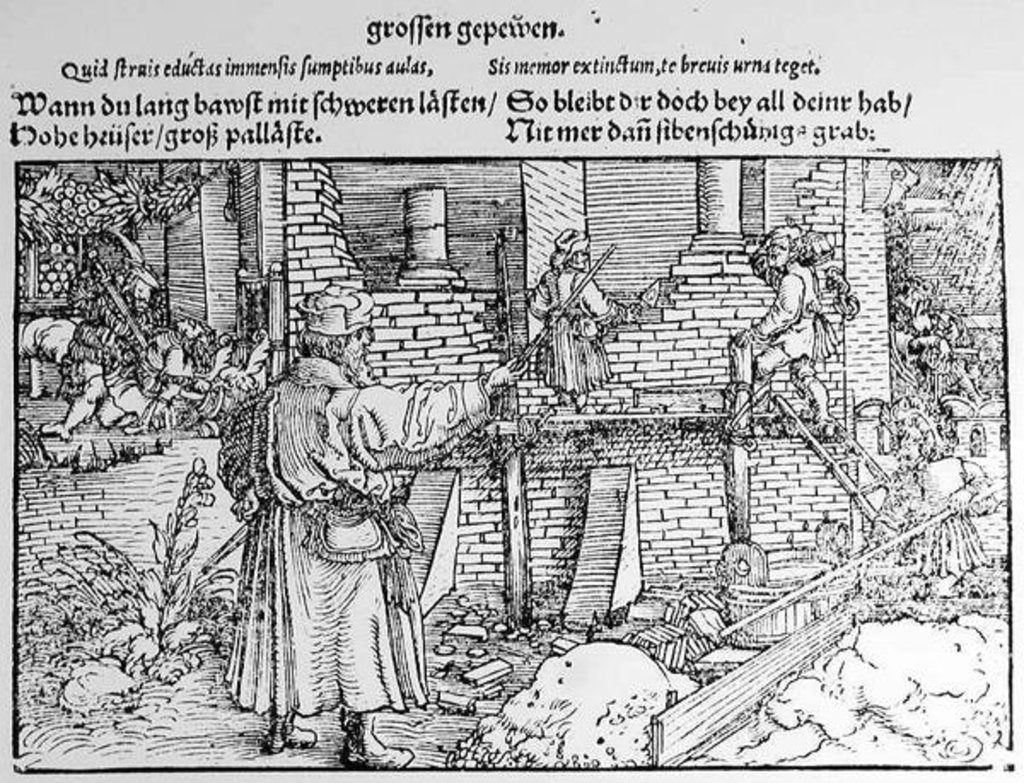 grossen gepeẅen.
Quid struis eductas immensis sumptibus aulas, Sis memor extinctum, te brevis urna teget.
Wann du lang bawst mit schweren låsten/ So bleibt dir doch bey all deinr hab/
Hohe heüser/groß pallåste. Nit mer dañ sibenschühigs grab: